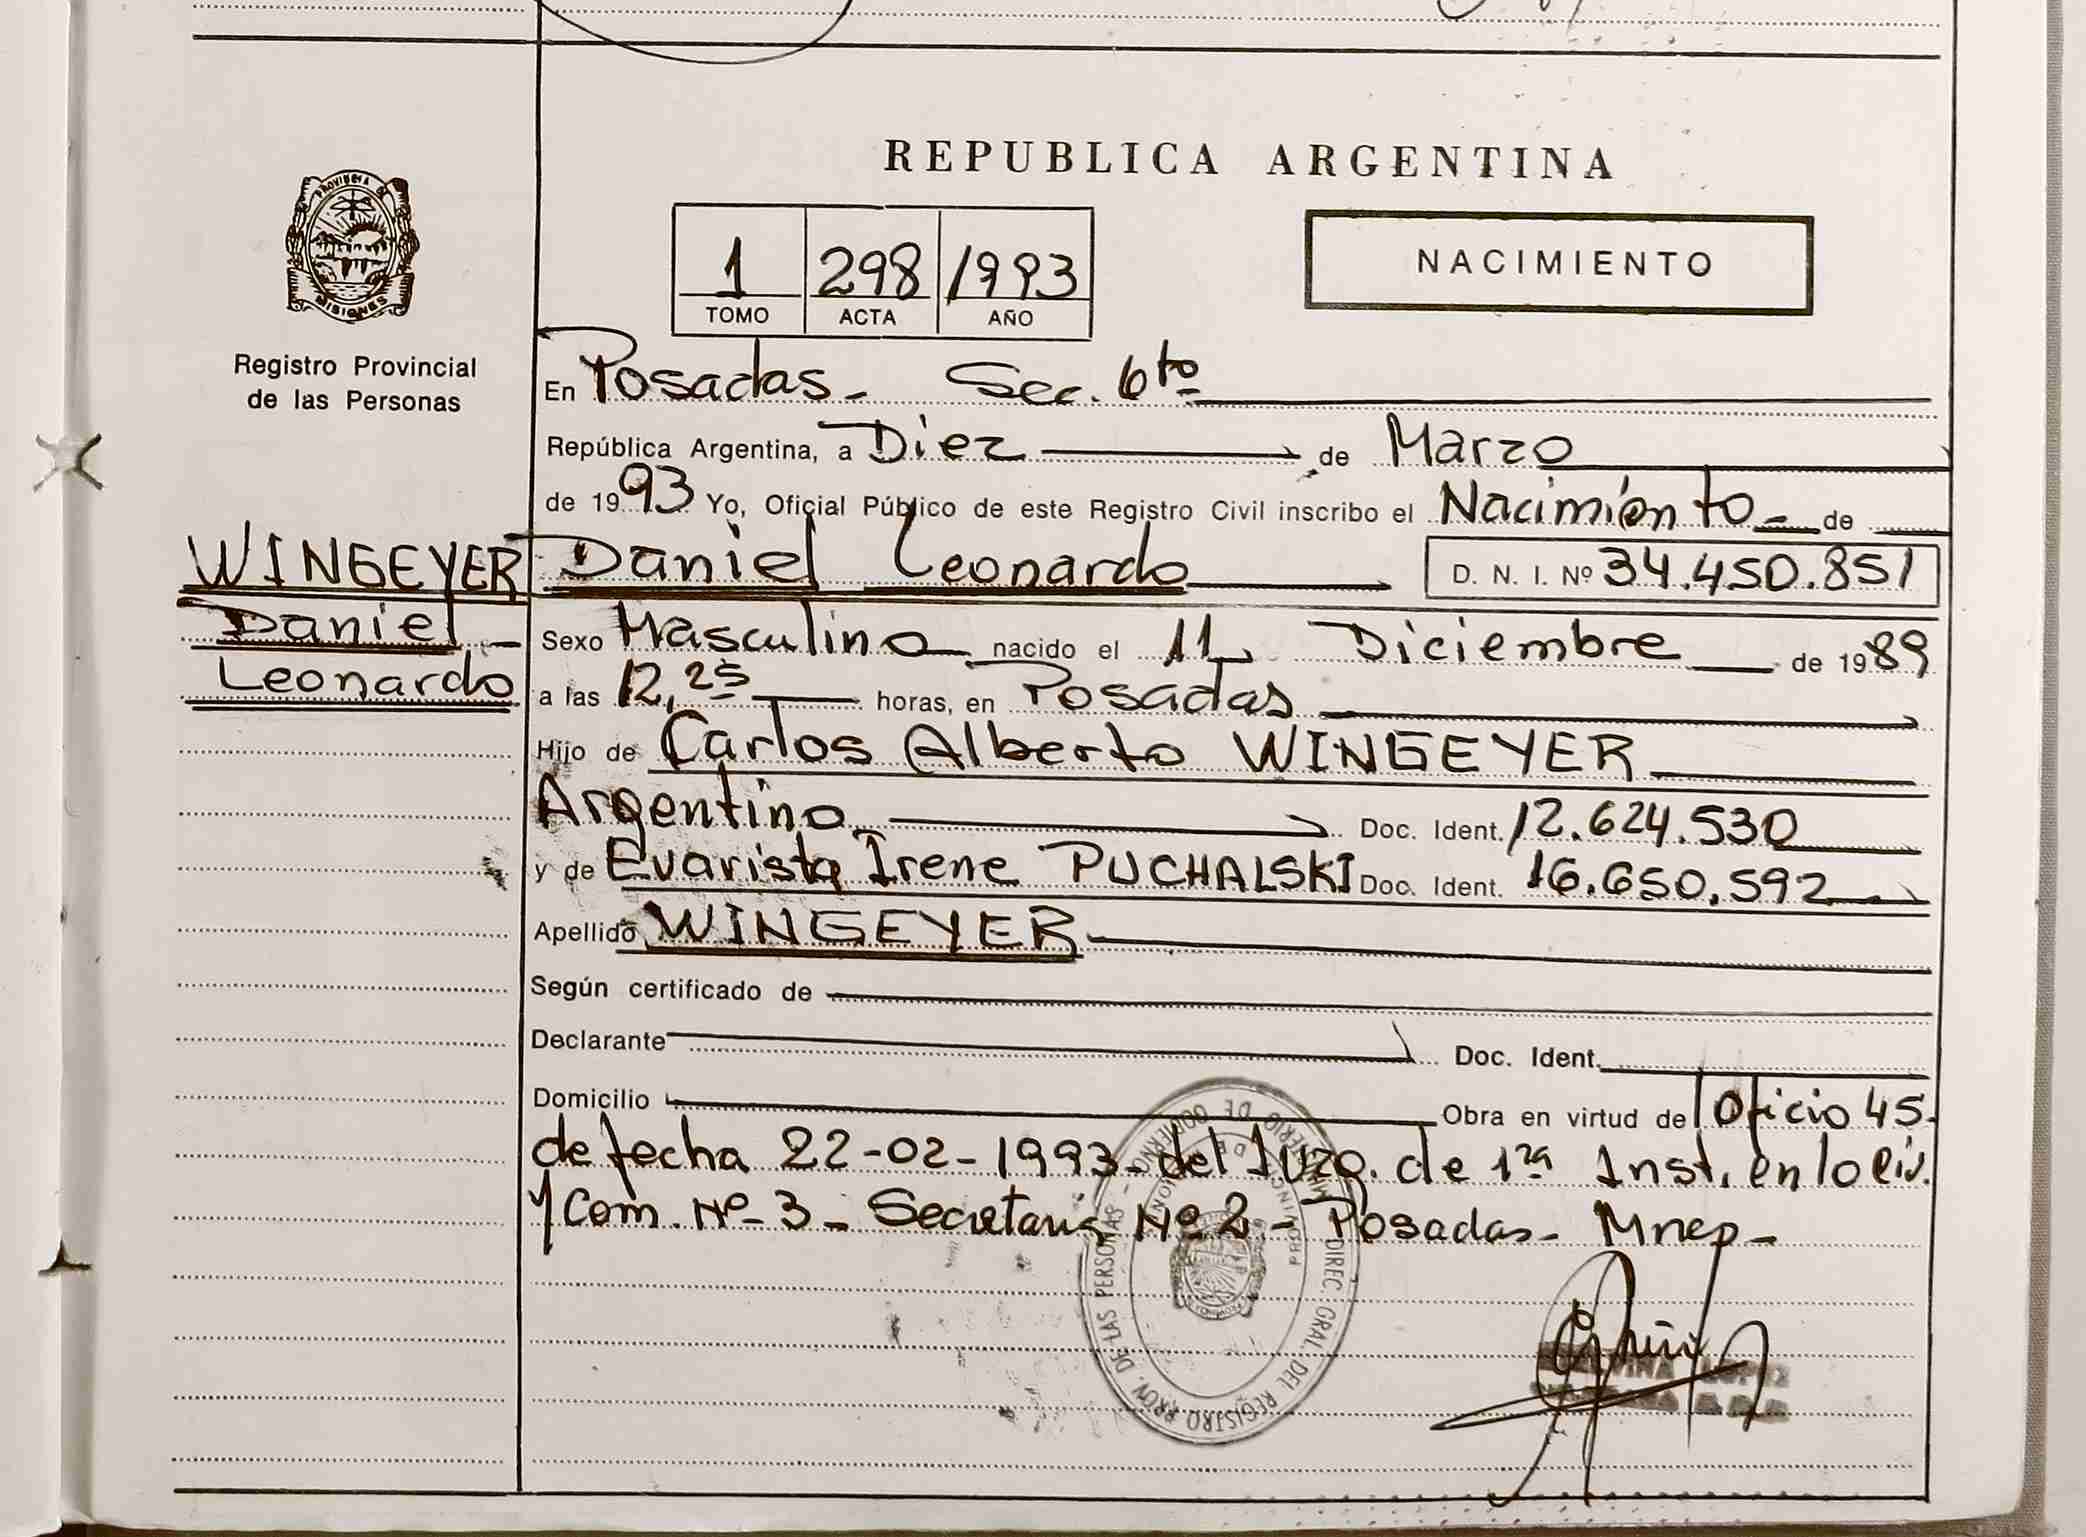 REPUBLICA ARGENTINA
PROVINCIA DE
MISIONES
Registro Provincial
de las Personas
1 298 1993
TOMO ACTA AÑO
NACIMIENTO
En Posadas - Sec. 6to
República Argentina, a Diez de Marzo
de 1993 Yo, Oficial Público de este Registro Civil inscribo el Nacimiento - de
WINGEYER
Daniel -
Leonardo
Daniel Leonardo D. N. I. Nº 34.450.851
Sexo Masculino nacido el 11 Diciembre de 1989
a las 12,25 horas, en Posadas
Hijo de Carlos Alberto WINGEYER
Argentino Doc. Ident. 12.624.530
y de Evarista Irene PUCHALSKI Doc. Ident. 16.650.592
Apellido WINGEYER
Según certificado de
Declarante Doc. Ident.
Domicilio Obra en virtud de Oficio 45-
de fecha 22-02-1993- del Juzg. de 1ra Inst. en lo Civ.
y Com. Nº 3 - Secretaria Nº 2 - Posadas - Mnes -
MINISTERIO DE GOBIERNO - DIREC. GRAL. DEL REGISTRO PROV. DE LAS PERSONAS -
PROVINCIA DE MISIONES
LOPEZ